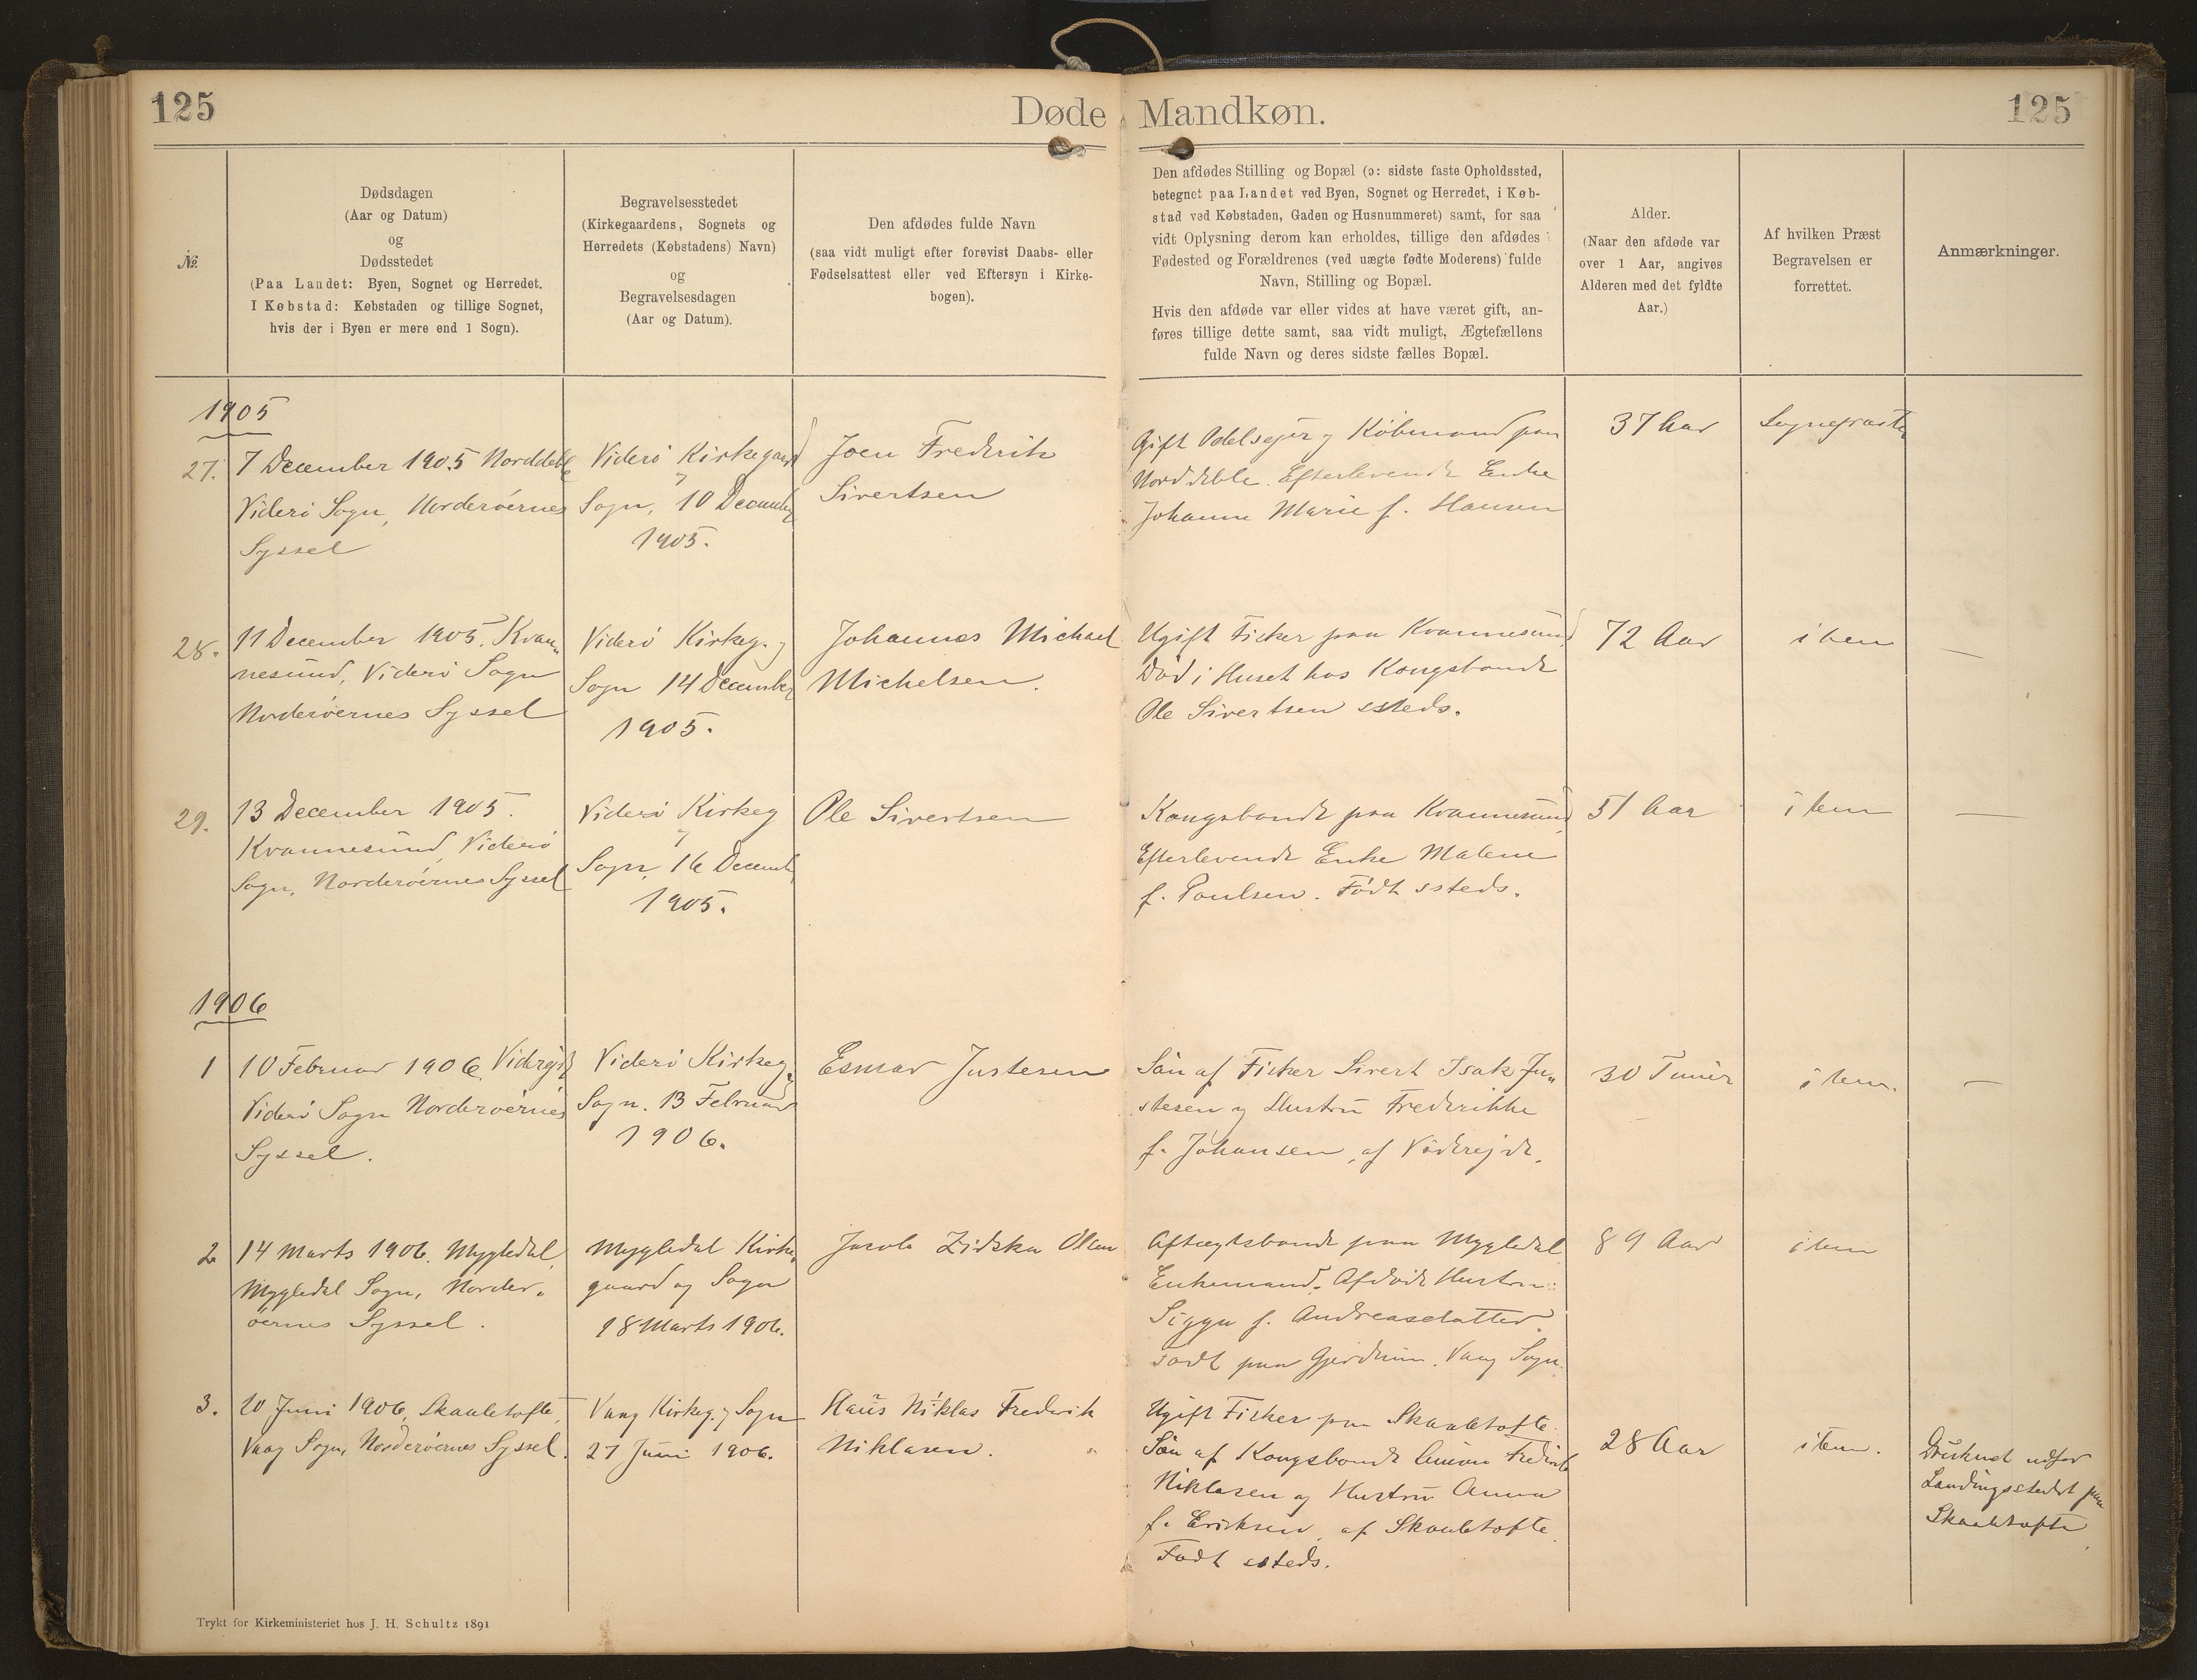 125
Døde
Mandkøn.
125
№
Dødsdagen
(Aar og Datum)
og
Dødsstedet
(Paa Landet: Byen, Sognet og Herredet.
I Købstad: Købstaden og tillige Sognet,
hvis der i Byen er mere end 1 Sogn).
Begravelsesstedet
(Kirkegaardens, Sognets og
Herredets (Købstadens) Navn)
og
Begravelsesdagen
(Aar og Datum).
Den afdødes fulde Navn
(saa vidt muligt efter forevist Daabs- eller
Fødselsattest eller ved Eftersyn i Kirke-
bogen).
Den afdødes Stilling og Bopæl (ɔ: sidste faste Opholdssted,
betegnet paa Landet ved Byen, Sognet og Herredet, i Køb-
stad ved Købstaden, Gaden og Husnummeret) samt, for saa
vidt Oplysning derom kan erholdes, tillige den afdødes
Fødested og Forældrenes (ved uægte fødte Moderens) fulde
Navn, Stilling og Bopæl.
Hvis den afdøde var eller vides at have været gift, an-
føres tillige dette samt, saa vidt muligt, Ægtefællens
fulde Navn og deres sidste fælles Bopæl.
Alder.
(Naar den afdøde var
over 1 Aar, angives
Alderen med det fyldte
Aar.)
Af hvilken Præst
Begravelsen er
forrettet.
Anmærkninger.
1905
27.
7 December 1905 Norddeble
Viderö Sogn, Norderöernes
Syssel
Viderö Kirkegaard
og
Sogn, 10 December
1905.
Joen Frederik
Sivertsen
Gift Odelsejer og Købmand paa
Norddeble. Efterlevende Enke
Johanne Marie f. Hansen
37 Aar
Sognepræsten
28.
11 December 1905. Kvan„
nesund, Viderö Sogn
Norderöernes Syssel
Viderö Kirkeg. og
Sogn 14 December
1905.
Johannes Michael
Michelsen.
Ugift Fisker paa Kvannesund
Död i Huset hos Kongsbonde
Ole Sivertsen ssteds.
72 Aar
item
—
29.
13 December 1905.
Kvannesund, Viderö
Sogn, Norderöernes Syssel
Viderö Kirkeg
og
Sogn, 16 Decemb.
1905.
Ole Sivertsen
Kongsbonde paa Kvannesund,
Efterlevende Enke Malene
f. Poulsen. Födt ssteds.
51 Aar
item
—
1906
1
10 Februar 1906 Viderejde
Viderö Sogn Norderöernes
Syssel.
Viderö Kirkeg. og
Sogn. 13 Februar
1906.
Esmar Justesen
Sön af Fisker Sivert Isak Ju„
stesen og Hustru Frederikke
f. Johansen, af Viderejde.
30 Timer
item.
—
2
14 Marts 1906. Mygledal,
Mygledal Sogn, Norder„
öernes Syssel.
Mygledal Kirke„
gaard og Sogn
18 Marts 1906.
Jacob Zidska Olsen
Aftægtsbonde paa Mygledal
Enkemand. Afdöde Hustru:
Siggu f. Andreasdatter.
Födt paa Gjerdum. Vaag Sogn.
89 Aar
item
3.
20 Juni 1906, Skaaletofte,
Vaag Sogn, Norderöernes Syssel.
Vaag Kirkeg. og Sogn
27 Juni 1906.
Hans Niklas Frederik
Niklasen.
Ugift Fisker paa Skaaletofte.
Sön af Kongsbonde Frederik
Niklasen og Hustru Anna
f. Eriksen, af Skaaletofte.
Födt ssteds.
28 Aar
item.
Druknet udfor
Landingsstedet paa
Skaaletofte
Trykt for Kirkeministeriet hos J. H. Schultz 1891